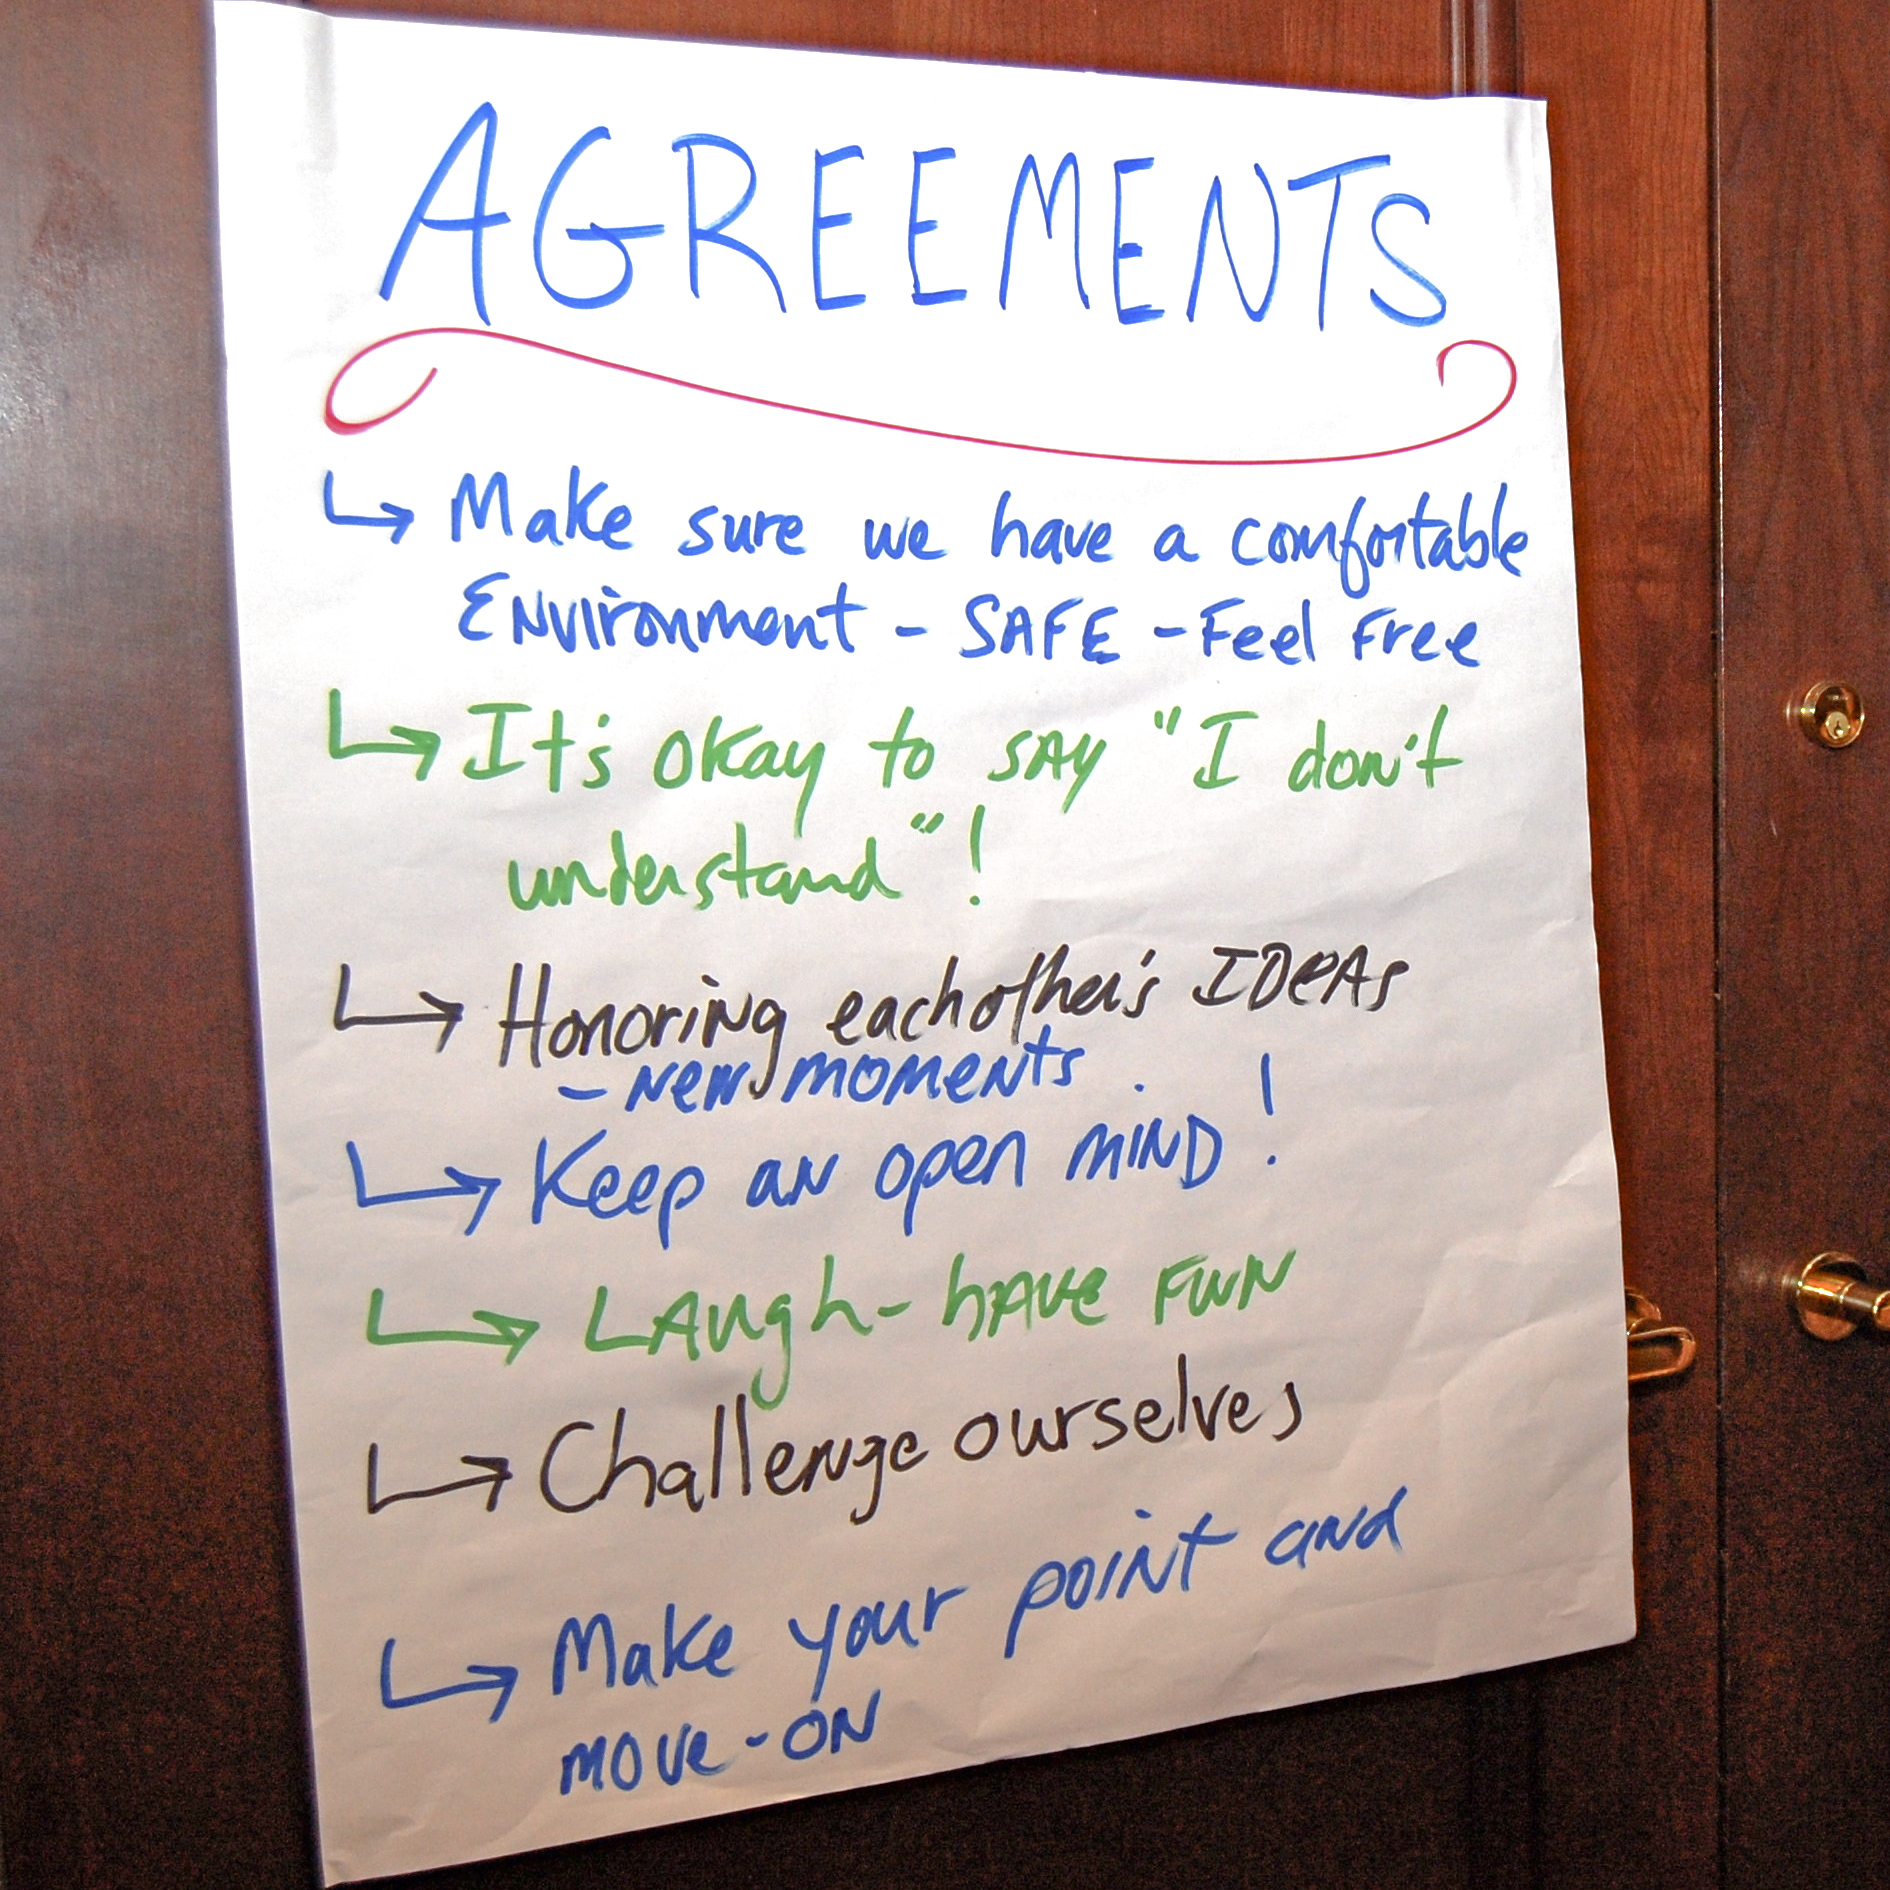 AGREEMENTS
Make sure we have a comfortable
Environment - SAFE - Feel Free
It's okay to say "I don't
understand"!
Honoring eachother's IDeAs
- New moments
Keep an open minD!
LAugh - hAve Fun
Challenge ourselves
Make your point and
move-on